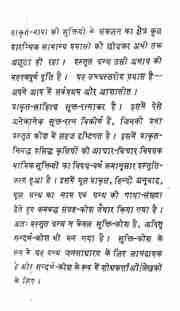 प्राकृत-भाषा की सूक्तियों के संकलन का क्षेत्र कुछ
प्रारम्भिक सामान्य प्रयासों को छोड़कर अभी तक
अछूता ही रहा। प्रस्तुत ग्रन्थ उसी अभाव की
महत्त्वपूर्ण पूर्ति है। यह उच्चस्तरीय प्रयास है—
अपने आप में सर्वप्रथम और आशातीत।
प्राकृत-साहित्य सूक्त-रत्नाकर है। इसमें ऐसे
अनेकानेक सूक्त-रत्न विकीर्ण हैं, जिनकी प्रभा
प्रस्तुत कोश में सहज दृष्टिगत है। इसमें प्राकृत-
निबद्ध प्रसिद्ध कृतियों की आचार-विचार विषयक
मार्मिक सूक्तियों का विषय-वर्ण समानुसार प्रस्तुति-
करण हुआ है। इसमें मूल प्राकृत, हिन्दी अनुवाद,
मूल ग्रन्थ का नाम एवं ग्रन्थ की गाथा-संख्या
देते हुए क्रमबद्ध संग्रह-कोश तैयार किया गया है।
अतः प्रस्तुत ग्रन्थ न केवल सूक्ति-कोश है, अपितु
सन्दर्भ-कोश भी बन गया है। सूक्ति-कोश के
रूप में यह ग्रन्थ जनसाधारण के लिए लाभदायक
है और सन्दर्भ-कोश के रूप में शोधकर्त्ताओं/लेखकों
के लिए।